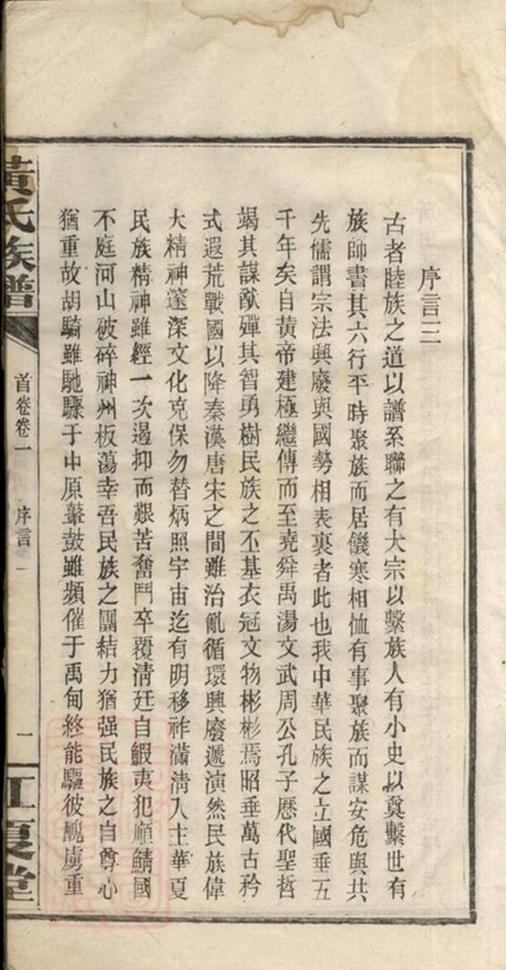 序言三
古者睦族之道以譜系聯之有大宗以繫族人有小史以奠繫世有
族師書其六行平時聚族而居饑寒相恤有事聚族而謀安危與共
先儒謂宗法興廢與國勢相表裏者此也我中華民族之立國垂五
千年矣自黃帝建極繼傳而至堯舜禹湯文武周公孔子歷代聖哲
竭其謀猷殫其智勇樹民族之丕基衣冠文物彬彬焉昭垂萬古矜
式遐荒戰國以降秦漢唐宋之間雖治亂循環興廢遞演然民族偉
大精神邃深文化克保勿替炳照宇宙迄有明移祚滿清入主華夏
民族精神雖經一次遏抑而艱苦奮鬥卒覆淸廷自鰕夷犯順鯖國
不庭河山破碎神州板蕩幸吾民族之團結力猶强民族之自尊心
猶重故胡騎雖馳驟于中原鼙鼓雖頻催于禹甸終能驅彼醜虜重
黃氏族譜
首卷卷一
序言
一
江夏堂